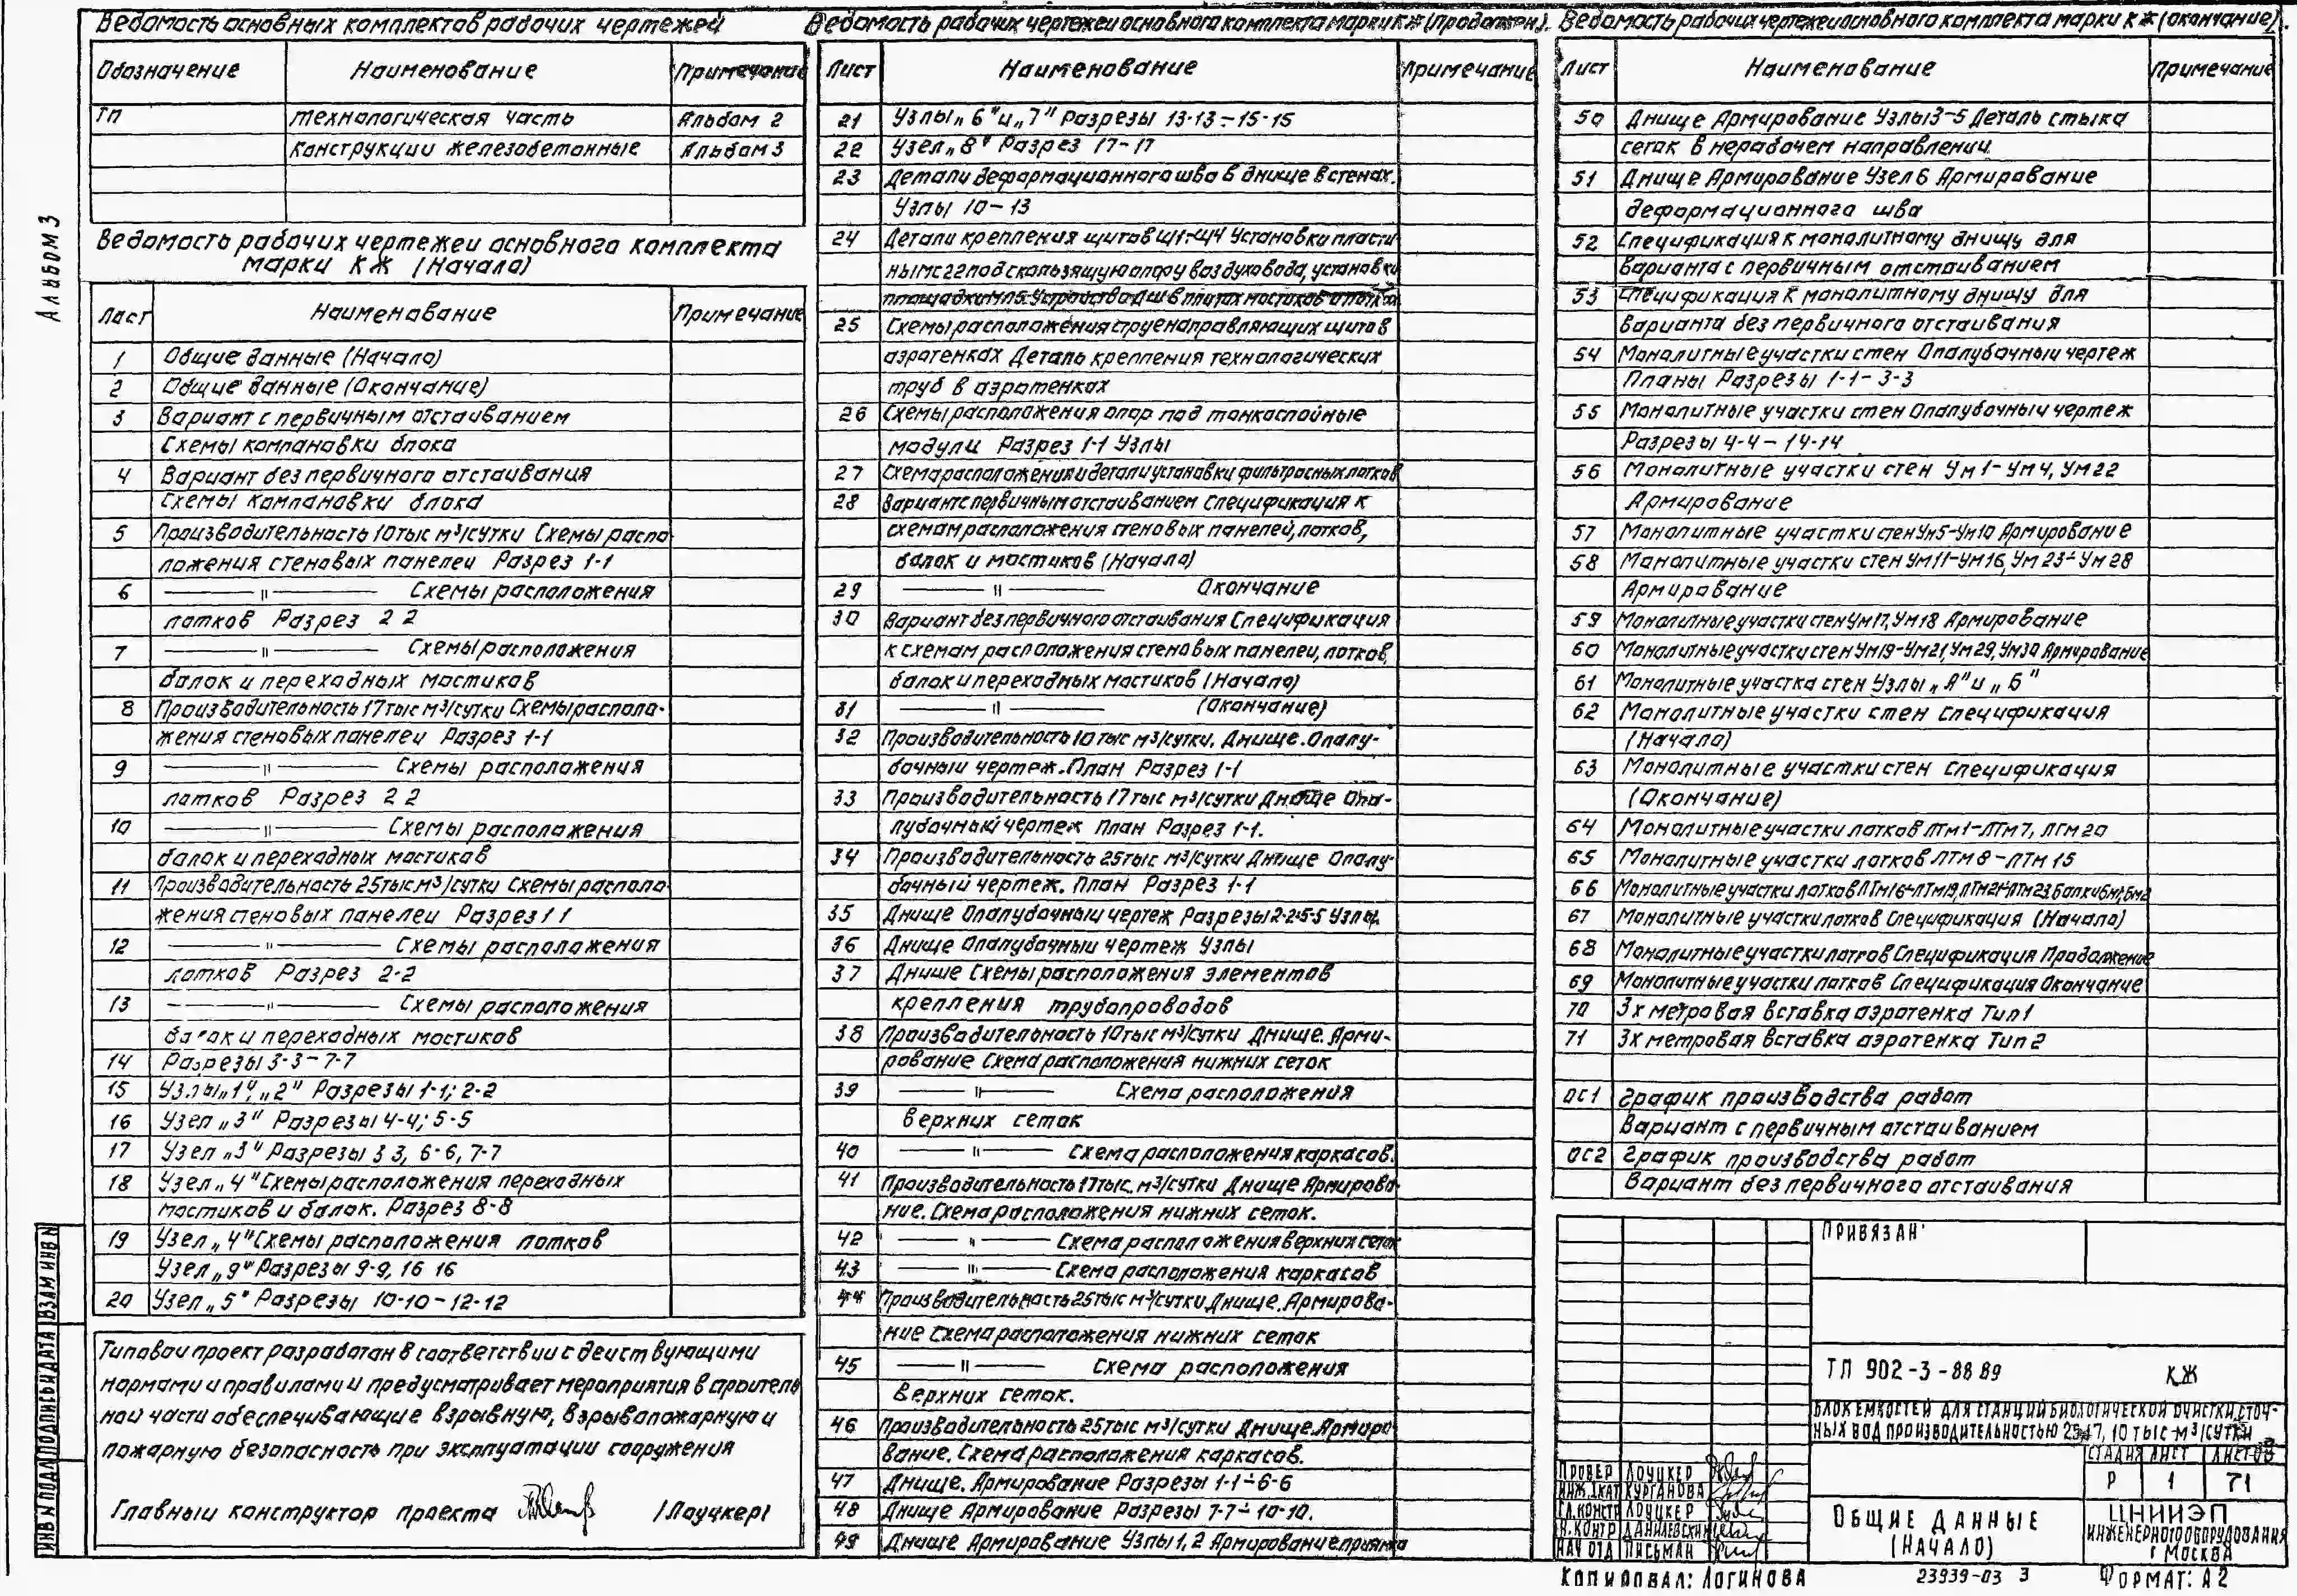 Ведомость основных комплектов рабочих чертежей
Обозначение Наименование Примечание
ТП Технологическая часть Альбом 2
Конструкции железобетонные Альбом 3
Ведомость рабочих чертежей основного комплекта
марки КЖ (Начало)
Лист Наименование Примечание
1 Общие данные (Начало)
2 Общие данные (Окончание)
3 Вариант с первичным отстаиванием
Схемы компановки блока
4 Вариант без первичного отстаивания
Схемы компановки блока
5 Производительность 10 тыс м³/сутки Схемы распо
ложения стеновых панелей Разрез 1-1
6 —— " —— Схемы расположения
лотков Разрез 2 2
7 —— " —— Схемы расположения
балок и переходных мостиков
8 Производительность 17 тыс м³/сутки Схемы располо-
жения стеновых панелей Разрез 1-1
9 —— " —— Схемы расположения
лотков Разрез 2 2
10 —— " —— Схемы расположения
балок и переходных мостиков
11 Производительность 25 тыс м³/сутки Схемы располо-
жения стеновых панелей Разрез 1 1
12 —— " —— Схемы расположения
лотков Разрез 2-2
13 —— " —— Схемы расположения
балок и переходных мостиков
14 Разрезы 3-3 – 7-7
15 Узлы „1", „2" Разрезы 1-1; 2-2
16 Узел „3" Разрезы 4-4; 5-5
17 Узел „3" Разрезы 3 3, 6-6, 7-7
18 Узел „4" Схемы расположения переходных
мостиков и балок. Разрез 8-8
19 Узел „4" Схемы расположения лотков
Узел „9" Разрезы 9-9, 16 16
20 Узел „5" Разрезы 10-10 – 12-12
Типовой проект разработан в соответствии с действующими
нормами и правилами и предусматривает мероприятия в строитель
ной части обеспечивающие взрывную, взрывопожарную и
пожарную безопасность при эксплуатации сооружения
Главный конструктор проекта /Лоуцкер/
Ведомость рабочих чертежей основного комплекта марки КЖ (продолжен).
Лист Наименование Примечание
21 Узлы „6" и „7" Разрезы 13-13 ÷ 15-15
22 Узел „8" Разрез 17-17
23 Детали деформационного шва в днище в стенах.
Узлы 10 – 13
24 Детали крепления щитов Щ1÷Щ4 Установки пласти
ны мс 22 под скользящую опору воздуховода, установки
25 Схемы расположения струенаправляющих щитов в
аэротенках Деталь крепления технологических
труб в аэротенках
26 Схемы расположения опор под тонкослойные
модули Разрез 1-1 Узлы
27 Схема расположения и детали установки фильтросных лотков
28 Вариант с первичным отстаиванием Спецификация к
схемам расположения стеновых панелей, лотков,
балок и мостиков (Начало)
29 —— " —— Окончание
30 Вариант без первичного отстаивания Спецификация
к схемам расположения стеновых панелей, лотков,
балок и переходных мостиков (Начало)
31 —— " —— (Окончание)
32 Производительность 10 тыс м³/сутки. Днище. Опалу-
бочный чертеж. План Разрез 1-1
33 Производительность 17 тыс м³/сутки Днище Опа-
лубочный чертеж План Разрез 1-1.
34 Производительность 25 тыс м³/сутки Днище Опалу-
бочный чертеж. План Разрез 1-1
35 Днище Опалубочный чертеж Разрезы 2-2÷5-5 Узлы.
36 Днище Опалубочный чертеж Узлы
37 Днище Схемы расположения элементов
крепления трубопроводов
38 Производительность 10 тыс м³/сутки Днище. Арми-
рование Схема расположения нижних сеток
39 —— " —— Схема расположения
верхних сеток
40 —— " —— Схема расположения каркасов.
41 Производительность 17 тыс. м³/сутки Днище Армирова-
ние. Схема расположения нижних сеток.
42 —— " —— Схема расположения верхних сеток
43 —— " —— Схема расположения каркасов
44 Производительность 25 тыс м³/сутки Днище. Армирова-
ние Схема расположения нижних сеток
45 —— " —— Схема расположения
верхних сеток.
46 Производительность 25 тыс м³/сутки Днище. Армиро
вание. Схема расположения каркасов.
47 Днище. Армирование Разрезы 1-1 ÷ 6-6
48 Днище Армирование Разрезы 7-7 ÷ 10-10.
49 Днище Армирование Узлы 1, 2 Армирование приямка
Ведомость рабочих чертежей основного комплекта марки КЖ (окончание).
Лист Наименование Примечание
50 Днище Армирование Узлы 3-5 Деталь стыка
сеток в нерабочем направлении
51 Днище Армирование Узел 6 Армирование
деформационного шва
52 Спецификация к монолитному днищу для
варианта с первичным отстаиванием
53 Спецификация к монолитному днищу для
варианта без первичного отстаивания
54 Монолитные участки стен Опалубочный чертеж
Планы Разрезы 1-1 – 3-3
55 Монолитные участки стен Опалубочный чертеж
Разрезы 4-4 – 14-14
56 Монолитные участки стен Ум 1 – Ум 4, Ум 22
Армирование
57 Монолитные участки стен Ум5-Ум10 Армирование
58 Монолитные участки стен Ум 11-Ум 16, Ум 23÷Ум 28
Армирование
59 Монолитные участки стен Ум 17, Ум 18 Армирование
60 Монолитные участки стен Ум19-Ум21, Ум 29, Ум30 Армирование
61 Монолитные участка стен Узлы „А" и „Б"
62 Монолитные участки стен Спецификация
(Начало)
63 Монолитные участки стен Спецификация
(Окончание)
64 Монолитные участки лотков ЛТм 1-ЛТм 7, ЛТм 20
65 Монолитные участки лотков ЛТм 8 – ЛТм 15
66 Монолитные участки лотков ЛТм16÷ЛТм19, ЛТм21÷ЛТм23 балки Бм1, Бм2
67 Монолитные участки лотков Спецификация (Начало)
68 Монолитные участки лотков Спецификация Продолжение
69 Монолитные участки лотков Спецификация Окончание
70 3х метровая вставка аэротенка Тип 1
71 3х метровая вставка аэротенка Тип 2
ОС1 График производства работ
Вариант с первичным отстаиванием
ОС2 График производства работ
Вариант без первичного отстаивания
Привязан:
ТП 902-3-88 89 КЖ
Блок емкостей для станций биологической очистки сточ-
ных вод производительностью 25,17, 10 тыс·м³/сутки
Стадия Лист Листов
Р 1 71
Провер Лоуцкер
Инж.1кат Курганова
Гл.констр Лоуцкер
Н.контр Данилевский
Нач отд Письман
Общие данные
(Начало)
ЦНИИЭП
инженерного оборудования
г Москва
Копировал: Логинова
23939-03 3
Формат: А2
Альбом 3
Инв N подл Подпись и дата Взам инв N